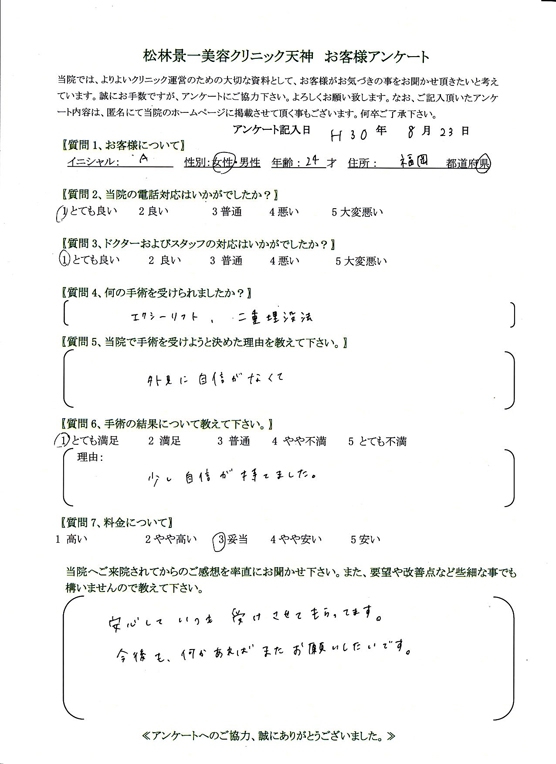 松林景一美容クリニック天神　お客様アンケート
当院では、よりよいクリニック運営のための大切な資料として、お客様がお気づきの事をお聞かせ頂きたいと考え
ています。誠にお手数ですが、アンケートにご協力下さい。よろしくお願い致します。なお、ご記入頂いたアンケ
ート内容は、匿名にて当院のホームページに掲載させて頂く事もございます。何卒ご了承下さい。
アンケート記入日　H30 年　8 月 23 日
〖質問1、お客様について〗
イニシャル：　A　性別：女性・男性　年齢：24 才　住所：　福岡　都道府県
〖質問2、当院の電話対応はいかがでしたか？〗
1 とても良い　2 良い　3 普通　4 悪い　5 大変悪い
〖質問3、ドクターおよびスタッフの対応はいかがでしたか？〗
1 とても良い　2 良い　3 普通　4 悪い　5 大変悪い
〖質問4、何の手術を受けられましたか？〗
エクシーリフト、二重埋没法
〖質問5、当院で手術を受けようと決めた理由を教えて下さい。〗
外見に自信がなくて
〖質問6、手術の結果について教えて下さい。〗
1 とても満足　2 満足　3 普通　4 やや不満　5 とても不満
理由：
少し自信が持てました。
〖質問7、料金について〗
1 高い　2 やや高い　3 妥当　4 やや安い　5 安い
当院へご来院されてからのご感想を率直にお聞かせ下さい。また、要望や改善点など些細な事でも
構いませんので教えて下さい。
安心していつも受けさせてもらってます。
今後も、何かあればまたお願いしたいです。
≪アンケートへのご協力、誠にありがとうございました。≫